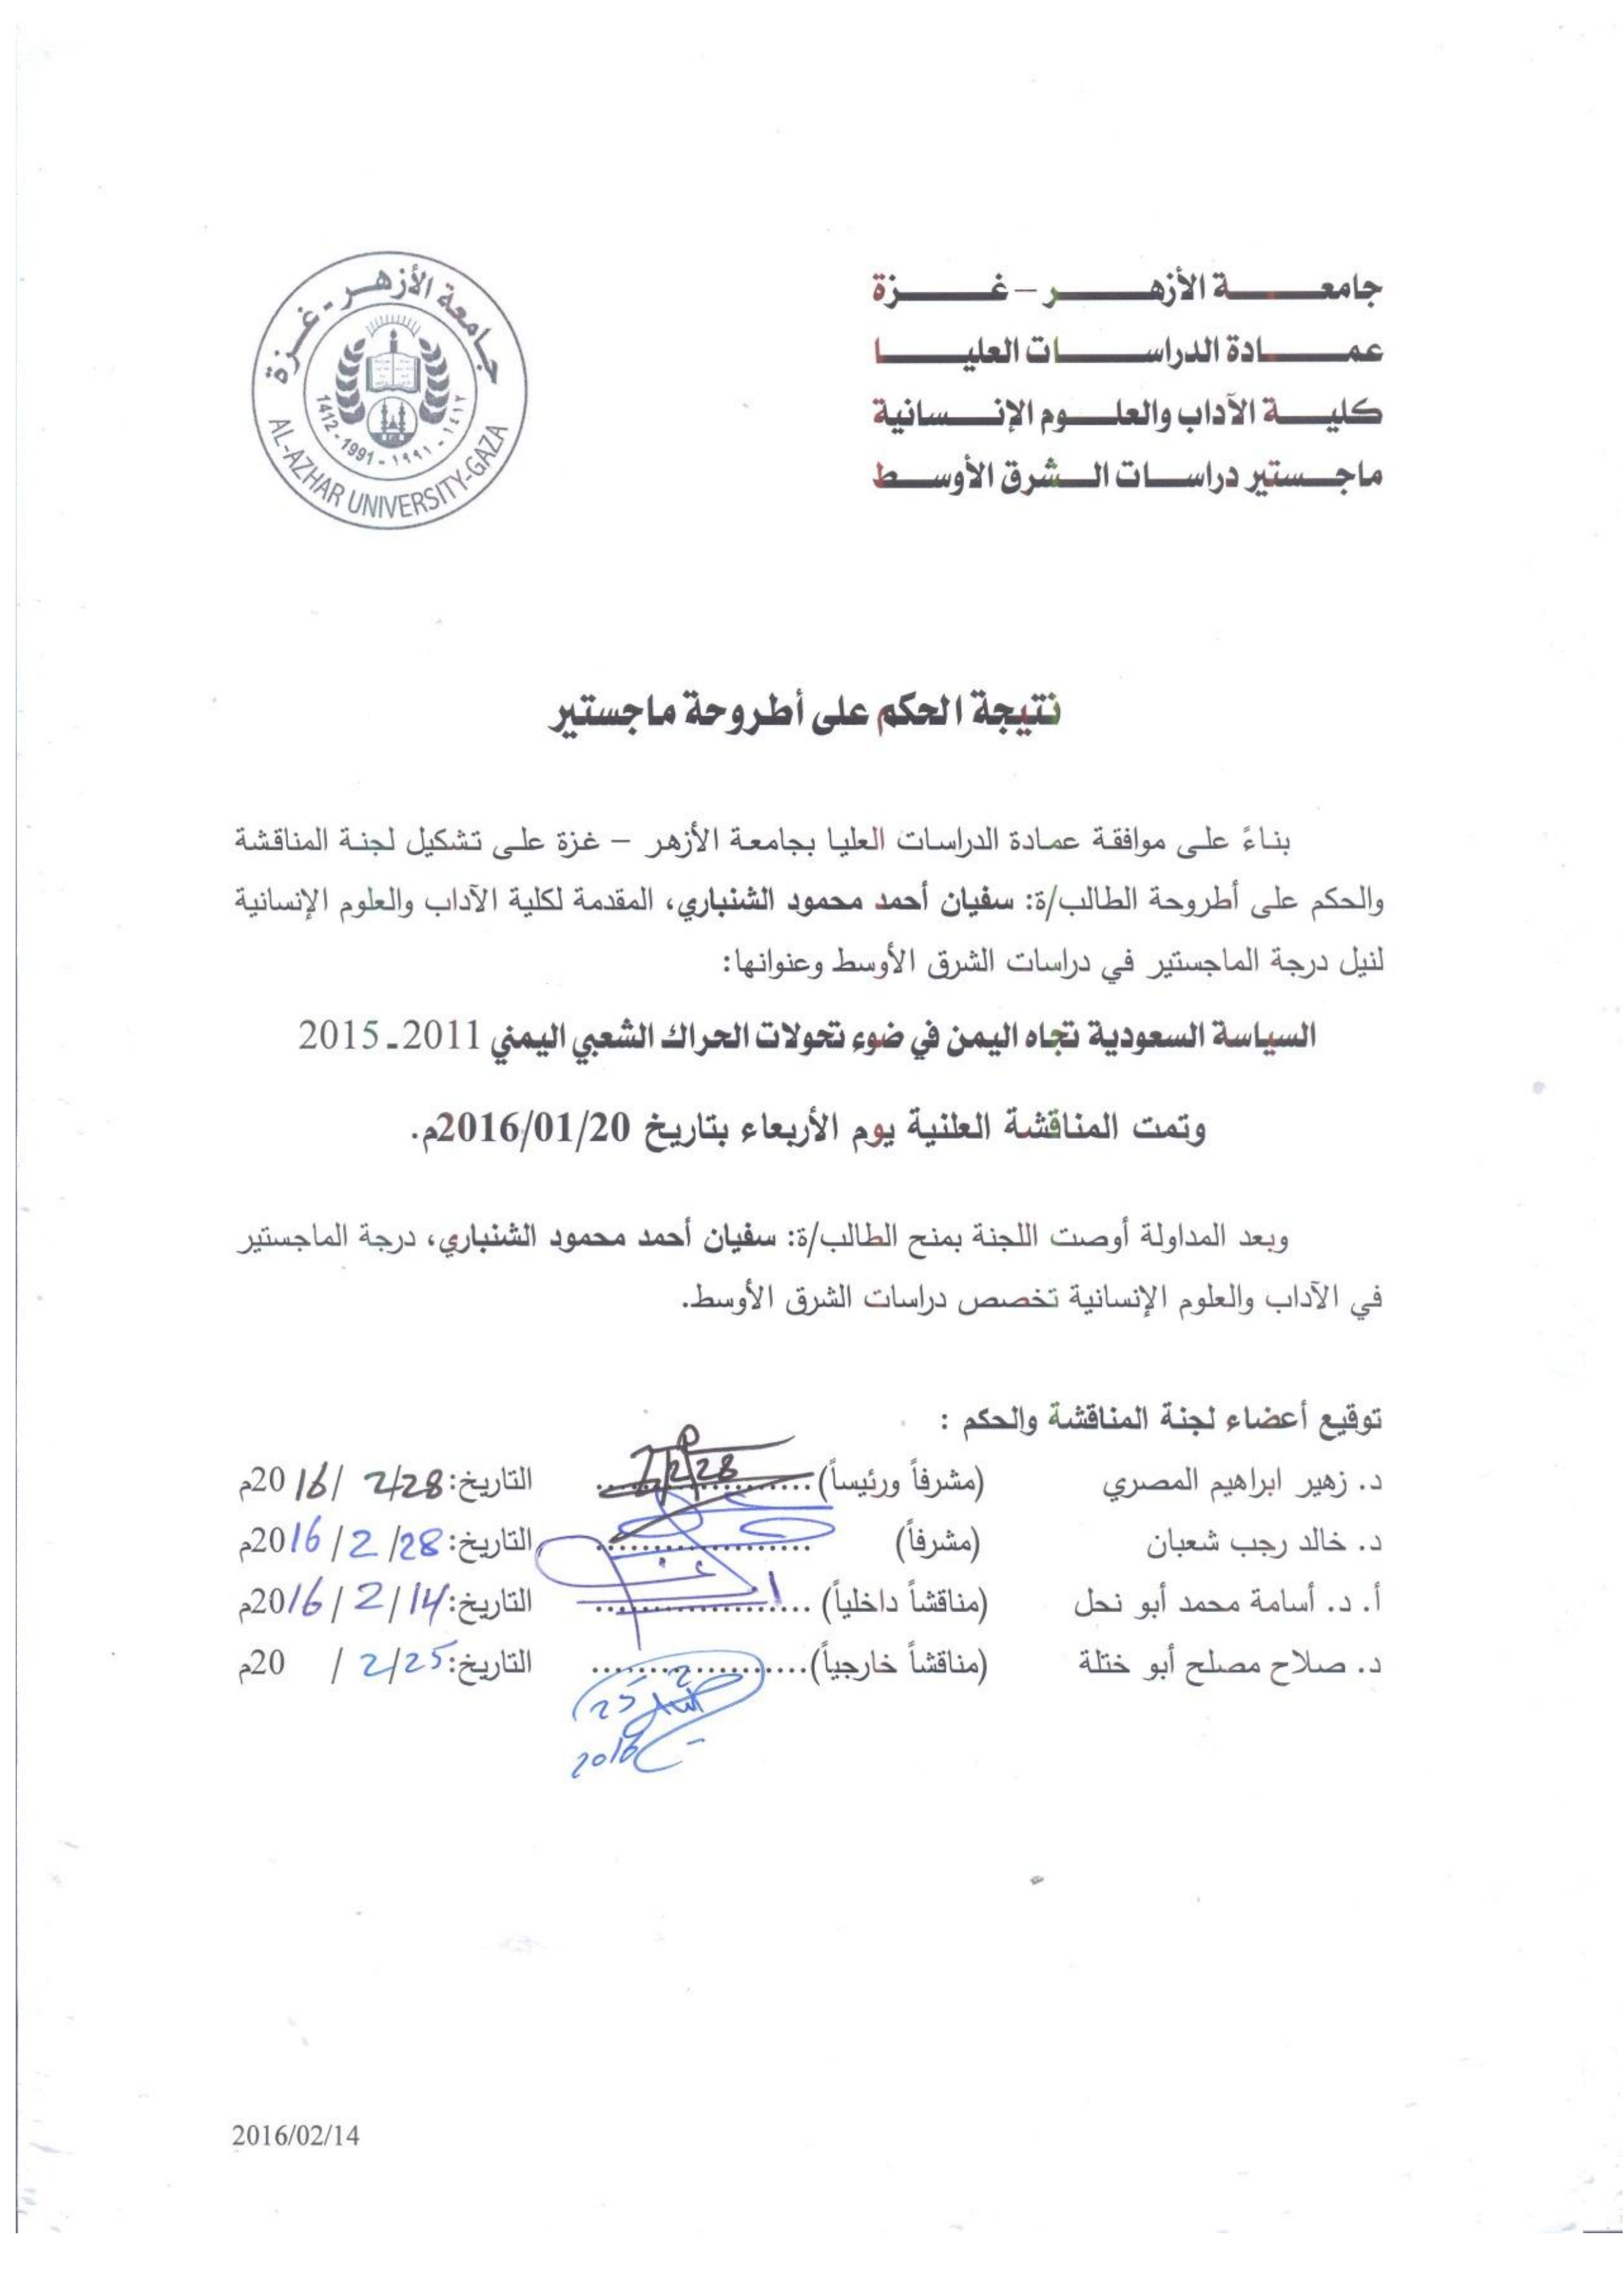 جامعة الأزهر – غزة
عمادة الدراسات العليا
كلية الآداب والعلوم الإنسانية
ماجستير دراسات الشرق الأوسط
جامعة الأزهر - غزة
1412 - 1991 - ١٩٩١ - ١٤١٢
AL-AZHAR UNIVERSITY-GAZA
نتيجة الحكم على أطروحة ماجستير
بناءً على موافقة عمادة الدراسات العليا بجامعة الأزهر – غزة على تشكيل لجنة المناقشة
والحكم على أطروحة الطالب/ة: سفيان أحمد محمود الشنباري، المقدمة لكلية الآداب والعلوم الإنسانية
لنيل درجة الماجستير في دراسات الشرق الأوسط وعنوانها:
السياسة السعودية تجاه اليمن في ضوء تحولات الحراك الشعبي اليمني 2011ـ2015
وتمت المناقشة العلنية يوم الأربعاء بتاريخ 2016/01/20م.
وبعد المداولة أوصت اللجنة بمنح الطالب/ة: سفيان أحمد محمود الشنباري، درجة الماجستير
في الآداب والعلوم الإنسانية تخصص دراسات الشرق الأوسط.
توقيع أعضاء لجنة المناقشة والحكم :
د. زهير ابراهيم المصري (مشرفاً ورئيساً).................... التاريخ: 2/28 / 2016م
د. خالد رجب شعبان (مشرفاً) .................... التاريخ: 28/ 2 / 2016م
أ. د. أسامة محمد أبو نحل (مناقشاً داخلياً) .................... التاريخ: 14/ 2 / 2016م
د. صلاح مصلح أبو ختلة (مناقشاً خارجياً).................... التاريخ: 2/25 / 20م
25
2
2016
2016/02/14